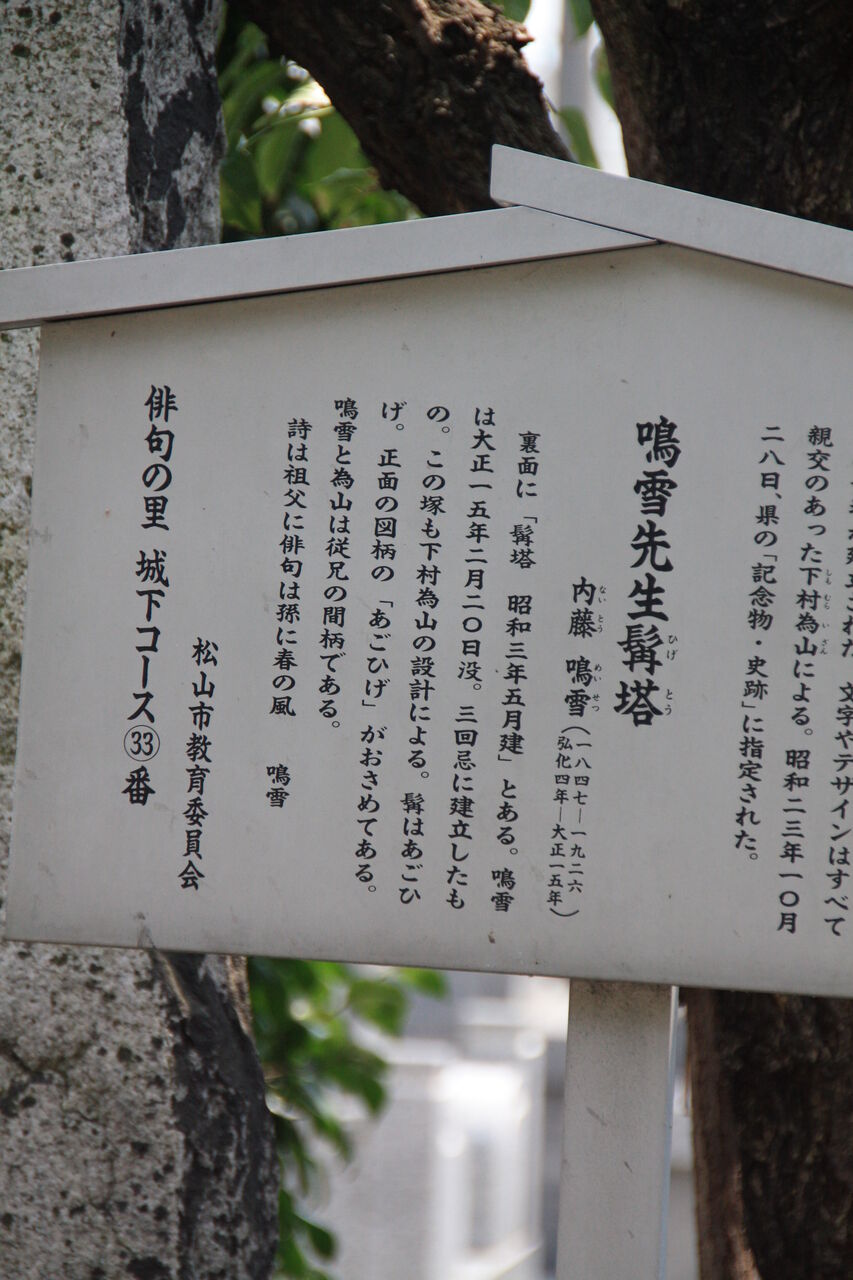 文字やデザインはすべて
親交のあった下村為山による。昭和二三年一〇月
しもむらいざん
二八日、県の「記念物・史跡」に指定された。
鳴雪先生髯塔
ひげとう
内藤 鳴雪(一八四七―一九二六
ないとう めいせつ
弘化四年―大正一五年)
裏面に「髯塔 昭和三年五月建」とある。鳴雪
は大正一五年二月二〇日没。三回忌に建立したも
の。この塚も下村為山の設計による。髯はあごひ
げ。正面の図柄の「あごひげ」がおさめてある。
鳴雪と為山は従兄の間柄である。
詩は祖父に俳句は孫に春の風 鳴雪
松山市教育委員会
俳句の里 城下コース㉝番